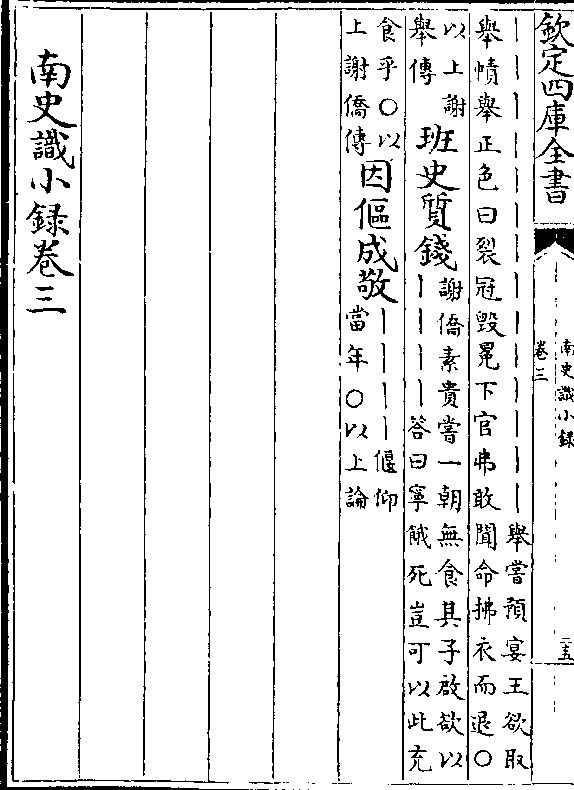 欽定四庫全書
南史識小録
卷三
二五
｜｜｜｜｜｜｜｜｜｜｜｜｜｜舉嘗預宴王欲取
舉幘舉正色曰裂冠毁冕下官弗敢聞命拂衣而退○
以上謝
舉傳
班史質錢
謝僑素貴嘗一朝無食其子啟欲以
｜｜｜｜答曰寧餓死豈可以此充
食乎○以
上謝僑傳
因傴成敬
｜｜｜｜偃仰
當年○以上論
南史識小録卷三